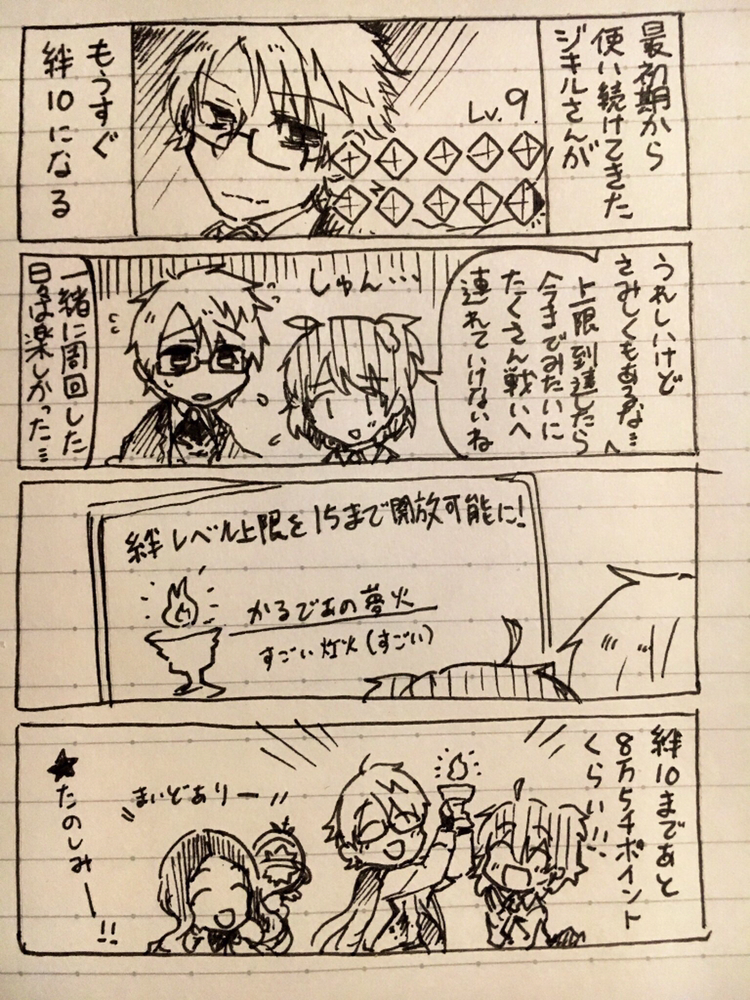 最初期から
使い続けてきた
ジキルさんが
Lv.9
もうすぐ
絆10になる
うれしいけど
さみしくもあるな…
上限到達したら
今までみたいに
たくさん戦いへ
連れていけないね
しゅん…
一緒に周回した
日々は楽しかった…
絆レベル上限を15まで開放可能に!
かるであの夢火
すごい灯火(すごい)
絆10まであと
8万5千ポイント
くらい!!
まいどありー!!
★たのしみー!!